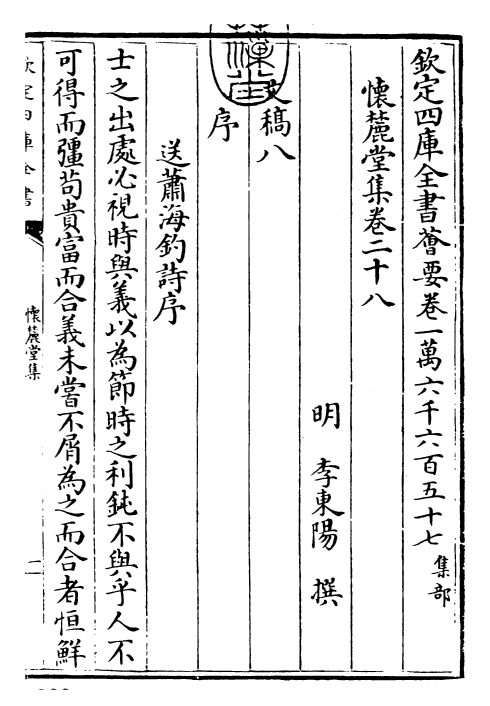 欽定四庫全書薈要卷一萬六千六百五十七 集部
懷麓堂集卷二十八
明 李東陽 撰
文稿八
序
送蕭海釣詩序
士之出處必視時與義以為節時之利鈍不與乎人不
可得而彊苟貴富而合義未嘗不屑為之而合者恒鮮
欽定四庫全書
懷麓堂集